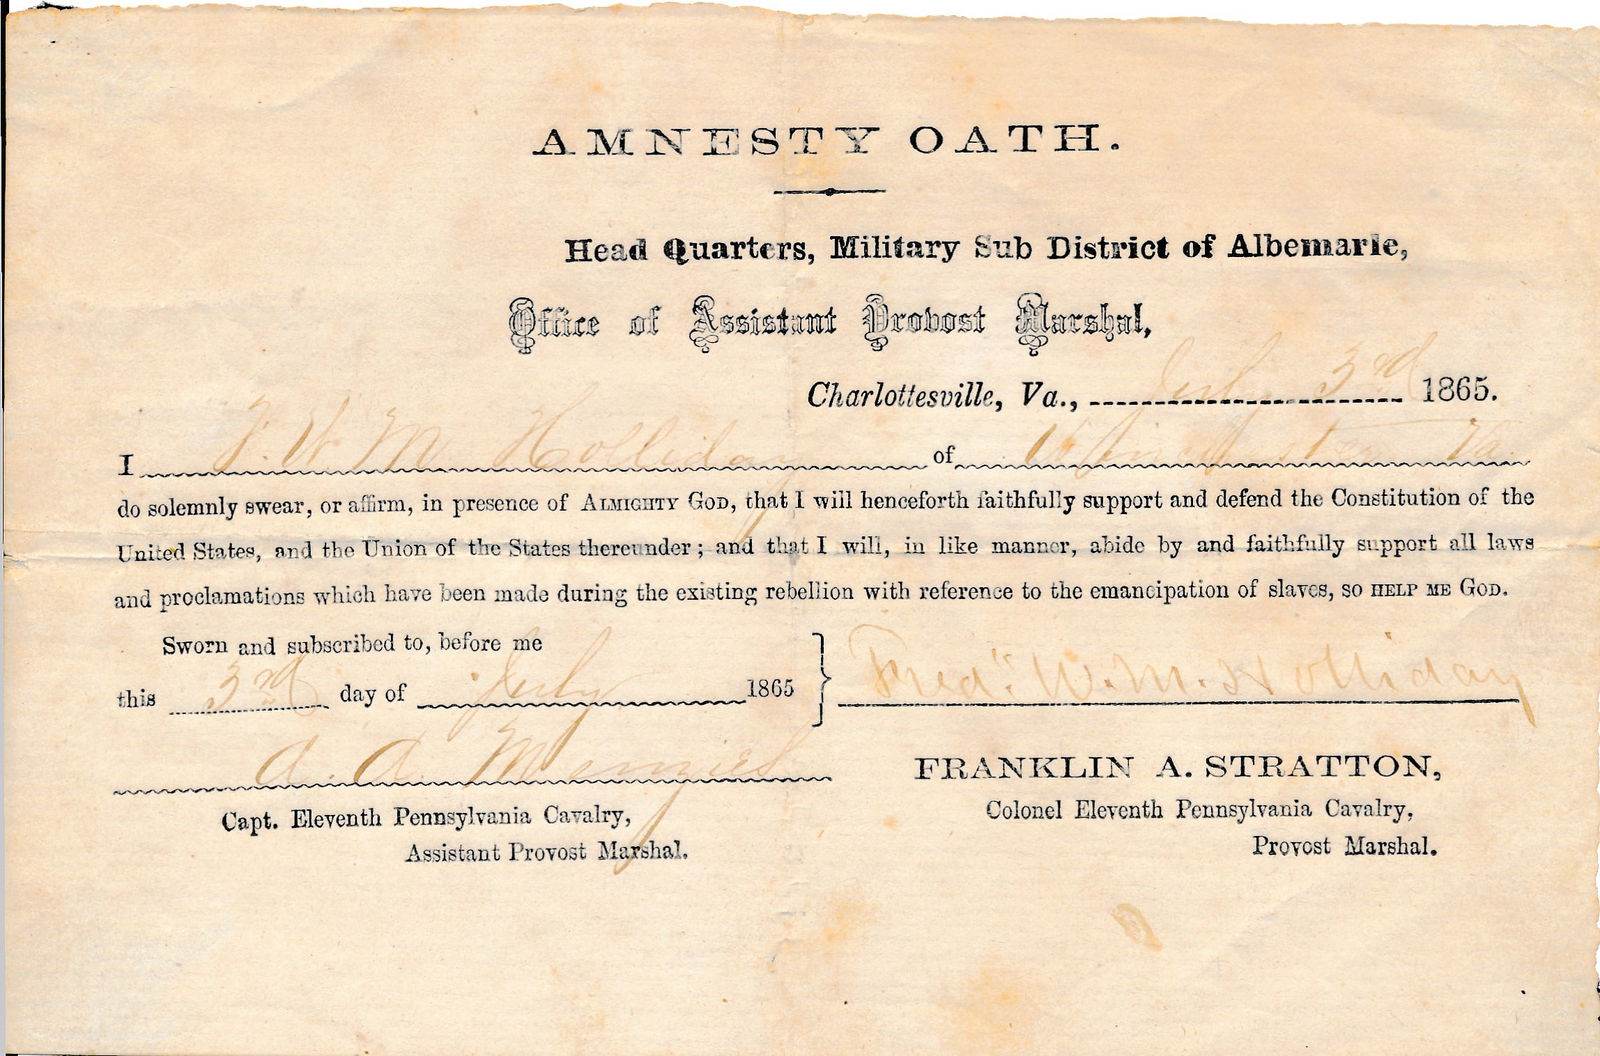 AMNESTY OATH.
Head Quarters, Military Sub District of Albemarle,
Office of Assistant Provost Marshal,
Charlottesville, Va., July 3rd 1865.
I F. W. M. Holliday of Winchester Va.
do solemnly swear, or affirm, in presence of ALMIGHTY GOD, that I will henceforth faithfully support and defend the Constitution of the
United States, and the Union of the States thereunder; and that I will, in like manner, abide by and faithfully support all laws
and proclamations which have been made during the existing rebellion with reference to the emancipation of slaves, SO HELP ME GOD.
Sworn and subscribed to, before me
this 3rd day of July 1865
Fredk. W. M. Holliday
A. A.
Capt. Eleventh Pennsylvania Cavalry,
Assistant Provost Marshal.
FRANKLIN A. STRATTON,
Colonel Eleventh Pennsylvania Cavalry,
Provost Marshal.